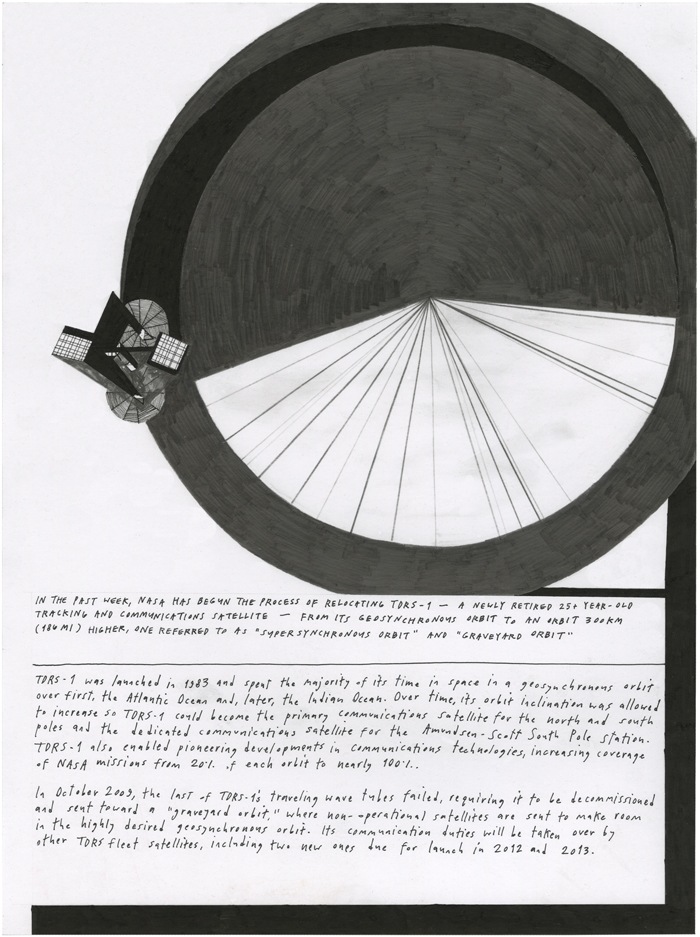 IN THE PAST WEEK, NASA HAS BEGUN THE PROCESS OF RELOCATING TDRS-1 — A NEWLY RETIRED 25+ YEAR-OLD
TRACKING AND COMMUNICATIONS SATELLITE — FROM ITS GEOSYNCHRONOUS ORBIT TO AN ORBIT 300KM
(186 MI) HIGHER, ONE REFERRED TO AS "SUPERSYNCHRONOUS ORBIT" AND "GRAVEYARD ORBIT"
TDRS-1 was launched in 1983 and spent the majority of its time in space in a geosynchronous orbit
over first, the Atlantic Ocean and, later, the Indian Ocean. Over time, its orbit inclination was allowed
to increase so TDRS-1 could become the primary communications satellite for the north and south
poles and the dedicated communications satellite for the Amundsen-Scott South Pole Station.
TDRS-1 also enabled pioneering developments in communications technologies, increasing coverage
of NASA missions from 20% of each orbit to nearly 100%.
In October 2009, the last of TDRS-1's traveling wave tubes failed, requiring it to be decommissioned
and sent toward a "graveyard orbit," where non-operational satellites are sent to make room
in the highly desired geosynchronous orbit. Its communication duties will be taken over by
other TDRS fleet satellites, including two new ones due for launch in 2012 and 2013.